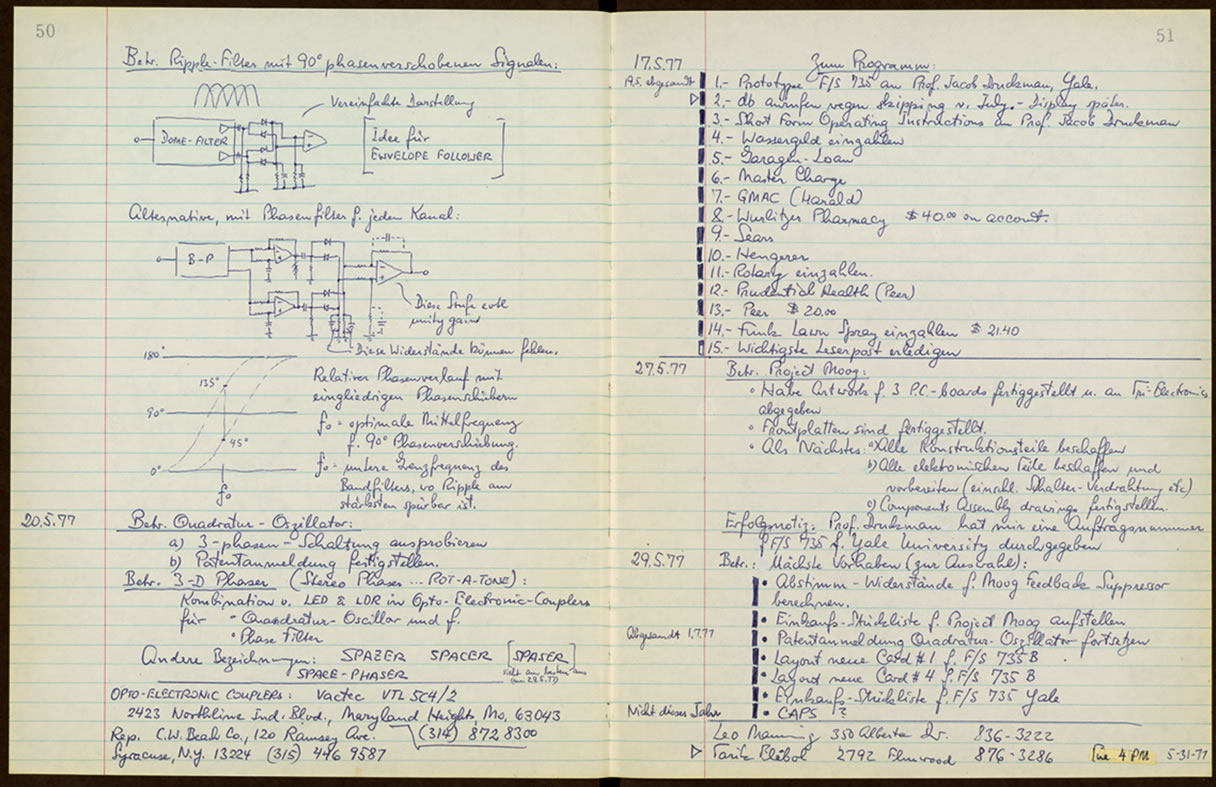 50
Betr. Ripple-Filter mit 90° phasenverschobenen Signalen:
Vereinfachte Darstellung
DOME-FILTER
[Idee für
ENVELOPE FOLLOWER]
Alternative, mit Phasenfilter f. jeden Kanal:
B-P
Diese Stufe evtl
unity gain
Diese Widerstände können fehlen.
180°
135°
90°
45°
0°
f₀
Relativer Phasenverlauf mit
eingliedrigen Phasenschiebern
f₀ = optimale Mittelfrequenz
f. 90° Phasenverschiebung.
f₀ = untere Grenzfrequenz des
Bandfilters, wo Ripple am
stärksten spürbar ist.
20.5.77 Betr. Quadratur-Oszillator:
a) 3-phasen-Schaltung ausprobieren
b) Patentanmeldung fertigstellen.
Betr. 3-D Phaser (Stereo Phaser ... ROT-A-TONE):
Kombination v. LED & LDR in Opto-Electronic-Couplers
für • Quadratur-Oscillor und f.
• Phase Filter
Andere Bezeichnungen: SPAZER SPACER [SPASER]
SPACE-PHASER
OPTO-ELECTRONIC COUPLERS: Vactec VTL 5C4/2
2423 Northline Ind. Blvd., Maryland Heights, Mo. 63043
Rep. C.W. Beach Co., 120 Ramsey Ave. (314) 872 8300
Syracuse, N.Y. 13224 (315) 446 9587
51
17.5.77 Zum Programm:
19.5. abgesandt 1.- Prototype F/S 735 an Prof. Jacob Druckman, Yale.
▷ 2.- db anrufen wegen skipping v. July.- Display später.
3.- Short Form Operating Instructions an Prof. Jacob Druckman
4.- Wassergeld einzahlen
5.- Garagen-Loan
6.- Master Charge
7.- GMAC (Harald)
8.- Wurlitzer Pharmacy $40.00 on account.
9.- Sears
10.- Hengerer
11.- Rotary einzahlen.
12.- Prudential Health (Peer)
13.- Peer $20.00
14.- Funk Lawn Spray einzahlen $21.40
15.- Wichtigste Leserpost erledigen
27.5.77 Betr. Project Moog:
• Habe Artwork f. 3 P.C.-boards fertiggestellt u. an Tri-Electronics
abgegeben
• Frontplatten sind fertiggestellt.
• Als Nächstes: a) Alle Konstruktionsteile beschaffen
b) Alle elektronischen Teile beschaffen und
vorbereiten (einschl. Schalter-Verdrahtung etc)
c) Components Assembly drawings fertigstellen.
Erfolgsnotiz: Prof. Druckman hat mir eine Auftragsnummer
f. F/S 735 f. Yale University durchgegeben
29.5.77 Betr.: Nächste Vorhaben (zur Auswahl):
• Abstimm-Widerstände f. Moog Feedback Suppressor
berechnen.
• Einkaufs-Stückliste f. Project Moog aufstellen
Abgesandt 1.7.77 • Patentanmeldung Quadratur-Oszillator fortsetzen
• Layout neue Card #1 f. F/S 735 B
• Layout neue Card #4 f. F/S 735 B
• Einkaufs-Stückliste f. F/S 735 Yale
Nicht dieses Jahr • CAPS ?
Leo Manning 350 Alberta Dr. 836-3222
▷ Tarik 2792 Elmwood 876-3286 Tue 4 PM 5-31-77